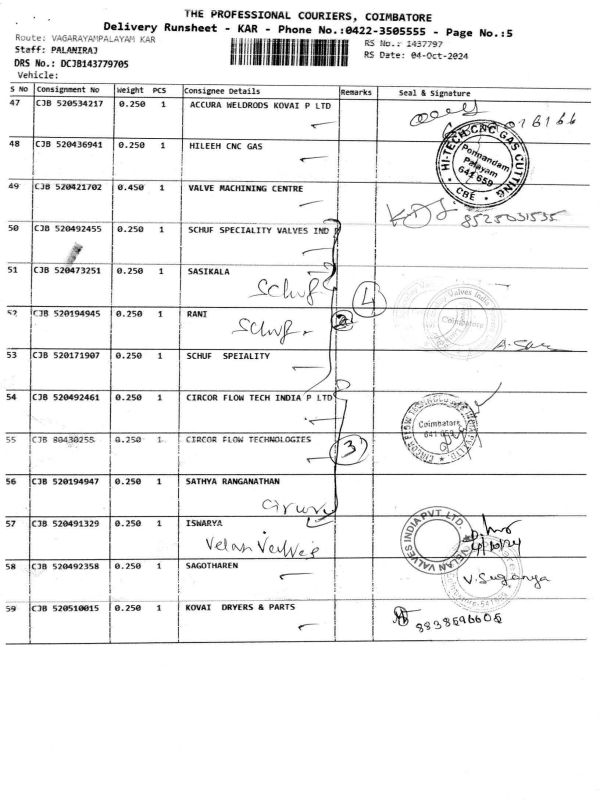 THE PROFESSIONAL COURIERS, COIMBATORE
Delivery Runsheet - KAR - Phone No.:0422-3505555 - Page No.:5
Route: VAGARAYAMPALAYAM KAR
RS No.: 1437797
Staff: PALANIRAJ
RS Date: 04-Oct-2024
DRS No.: DCJB143779705
Vehicle:
S No Consignment No Weight PCS Consignee Details Remarks Seal & Signature
47 CJB 520534217 0.250 1 ACCURA WELDRODS KOVAI P LTD
48 CJB 520436941 0.250 1 HILEEH CNC GAS
HI-TECH CNC GAS CUTTING
Ponnandam
Palayam
641 659
CBE
49 CJB 520421702 0.450 1 VALVE MACHINING CENTRE
8525031535
50 CJB 520492455 0.250 1 SCHUF SPECIALITY VALVES IND P
51 CJB 520473251 0.250 1 SASIKALA
Schuf
4
Valves India
Coimbatore
52 CJB 520194945 0.250 1 RANI
Schuf
53 CJB 520171907 0.250 1 SCHUF SPEIALITY
54 CJB 520492461 0.250 1 CIRCOR FLOW TECH INDIA P LTD
CIRCOR FLOW TECHNOLOGIES INDIA PVT LTD
Coimbatore
641 659
55 CJB 80430255 0.250 1 CIRCOR FLOW TECHNOLOGIES
3
56 CJB 520194947 0.250 1 SATHYA RANGANATHAN
57 CJB 520491329 0.250 1 ISWARYA
Velan Valves
VELAN VALVES INDIA PVT. LTD.
4/10/24
58 CJB 520492358 0.250 1 SAGOTHAREN
V. Suganya
59 CJB 520510015 0.250 1 KOVAI DRYERS & PARTS
8838596605